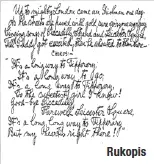 Up to mighty London came an Irishman one day.
As the streets are paved with gold, sure everyone was gay;
Singing songs of Piccadilly, Strand and Leicester Square,
Till Paddy got excited, then he shouted to them there—
Chorus—
"It's a long way to Tipperary,
It's a long way to go;
It's a long way to Tipperary,
To the sweetest girl I know!
Good-bye Piccadilly,
Farewell Leicester Square
It's a long, long way to Tipperary,
But my heart's right there!"
Rukopis